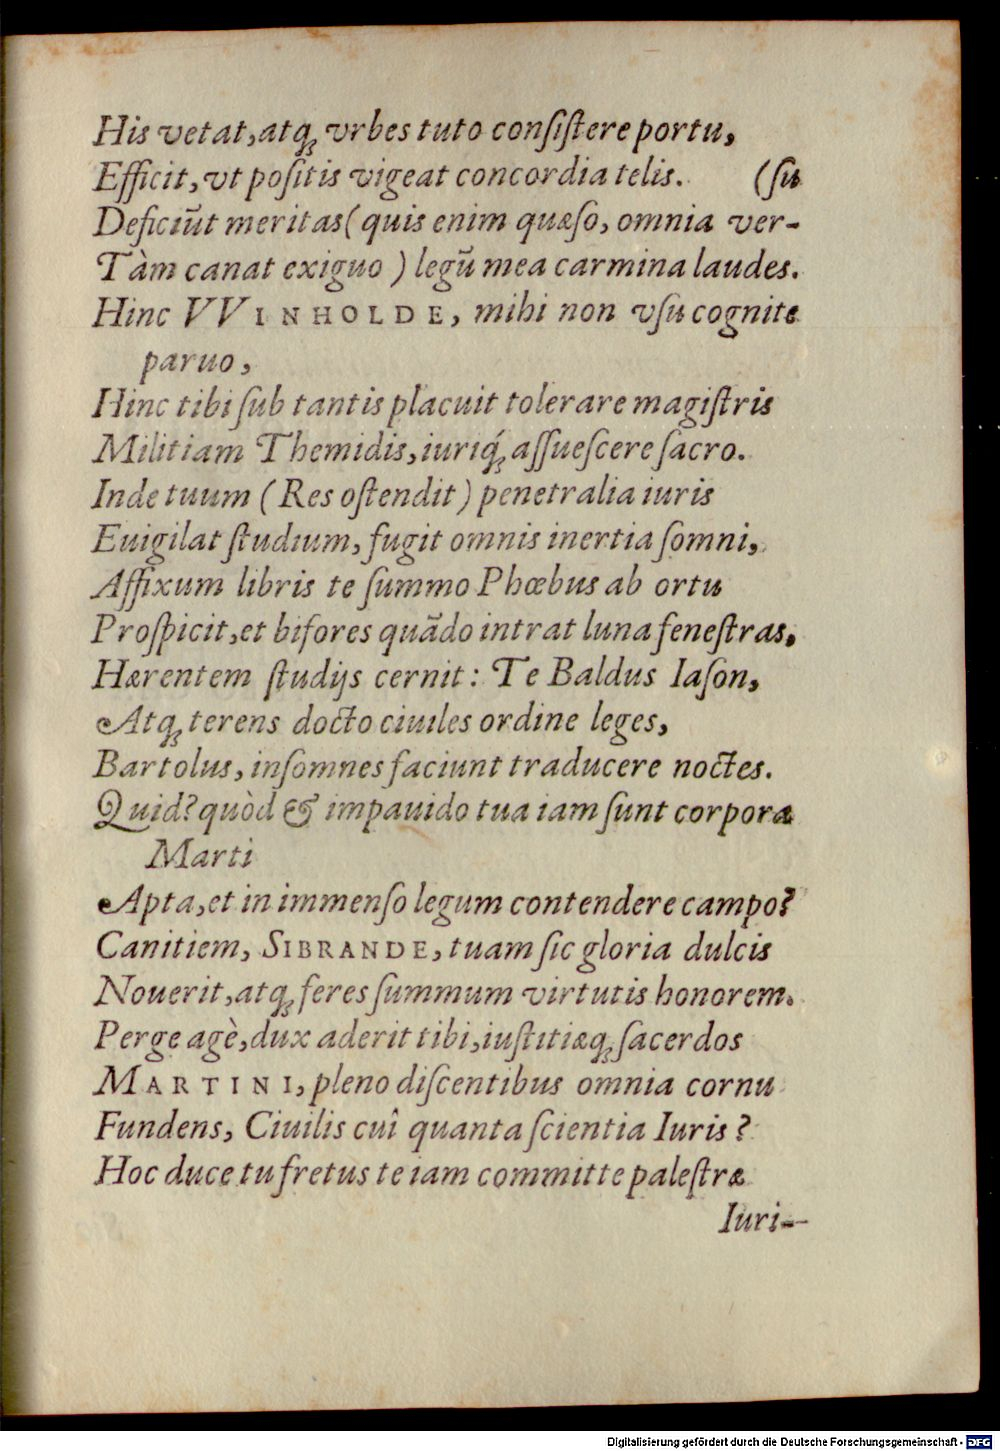 His vetat, atq; vrbes tuto conſiſtere portu,
Efficit, vt poſitis vigeat concordia telis. (ſu
Deficiūt meritas (quis enim quæſo, omnia ver-
Tàm canat exiguo) legū mea carmina laudes.
Hinc VVINHOLDE, mihi non vſu cognite
paruo,
Hinc tibi ſub tantis placuit tolerare magiſtris
Militiam Themidis, iuriq́; aſſueſcere ſacro.
Inde tuum (Res oſtendit) penetralia iuris
Euigilat ſtudium, fugit omnis inertia ſomni,
Affixum libris te ſummo Phœbus ab ortu
Proſpicit, et bifores quādo intrat luna feneſtras,
Hærentem ſtudijs cernit: Te Baldus Iaſon,
Atq; terens docto ciuiles ordine leges,
Bartolus, inſomnes faciunt traducere noctes.
Quid? quòd & impauido tua iam ſunt corpora
Marti
Apta, et in immenſo legum contendere campo?
Canitiem, SIBRANDE, tuam ſic gloria dulcis
Nouerit, atq; feres ſummum virtutis honorem.
Perge agè, dux aderit tibi, iuſtitiæq; ſacerdos
MARTINI, pleno diſcentibus omnia cornu
Fundens, Ciuilis cuî quanta ſcientia Iuris?
Hoc duce tu fretus te iam committe paleſtræ
Iuri-
Digitalisierung gefördert durch die Deutsche Forschungsgemeinschaft - DFG